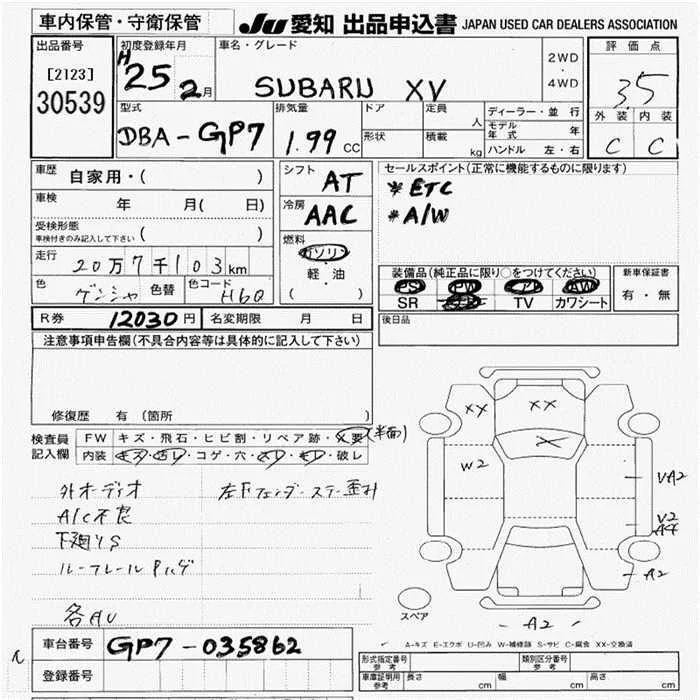 車内保管・守衛保管
JU 愛知 出品申込書 JAPAN USED CAR DEALERS ASSOCIATION
出品番号
[2123]
30539
初度登録年月
H25 2月
車名・グレード
SUBARU XV
2WD
・
4WD
評価点
3.5
外装 内装
C C
型式
DBA-GP7
排気量
1.99 CC
ドア
形状
定員 人
積載 kg
ディーラー・並行
モデル年式 年
ハンドル 左・右
車歴 自家用・( )
車検 年 月( 日)
受検形態
車検付きのみ記入して下さい ( )
走行 20万7千103km
色 ゲンシャ 色替 色コード H6Q
シフト AT
冷房 AAC
燃料
ガソリン
軽・油
( )
セールスポイント(正常に機能するものに限ります)
* ETC
* A/W
装備品(純正品に限り○をつけてください)
PS PW AW
SR TV カワシート
新車保証書
有・無
R券 12030円 名変期限 月 日
後日品
注意事項申告欄(不具合内容等は具体的に記入して下さい)
修復歴 有(箇所 )
検査員記入欄
FW キズ・飛石・ヒビ割・リペア跡・X要 (半面)
内装 キズ・汚レ・コゲ・穴・スレ・モレ・破レ
外オーディオ 左Fフェンダーステー歪み
A/C不良
下廻りS
ルーフレール Pハゲ
各AU
XX XX
X
W2
VA2
V2
A4
A2
A2
スペア
A-キズ E-エクボ U-凹み W-補修跡 S-サビ C-腐食 XX-交換済
車台番号 GP7-035862
登録番号
形式指定番号 参考 類別区分番号 参考
車庫証明用 参考 長さ cm 幅 cm 高さ cm